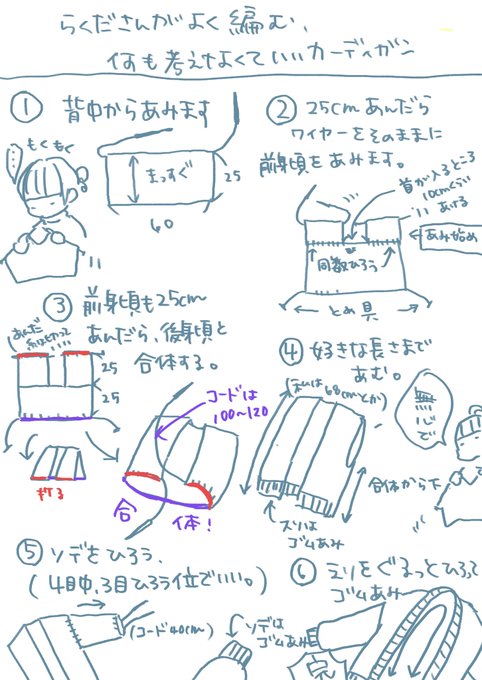 らくださんがよく編む、
何も考えなくていいカーディガン
① 背中からあみます
もくもく
まっすぐ
25
60
② 25cmあんだら
ワイヤーをそのままに
前身頃をあみます。
首が入るところ
10cmくらい
あける
あみ始め
同数ひろう
とめ具
③ 前身頃も25cm
あんだら、後身頃と
合体する。
25
25
ずる
コードは
100~120
合 体!
④ 好きな長さまで
あむ。
(私は68cmとか)
無心で
合体から下
スソは
ゴムあみ
⑤ ソデをひろう、
(4目中、3目ひろう位でいい。)
(コード40cm)
ソデは
ゴムあみ
⑥ えりをぐるっとひろって
ゴムあみ